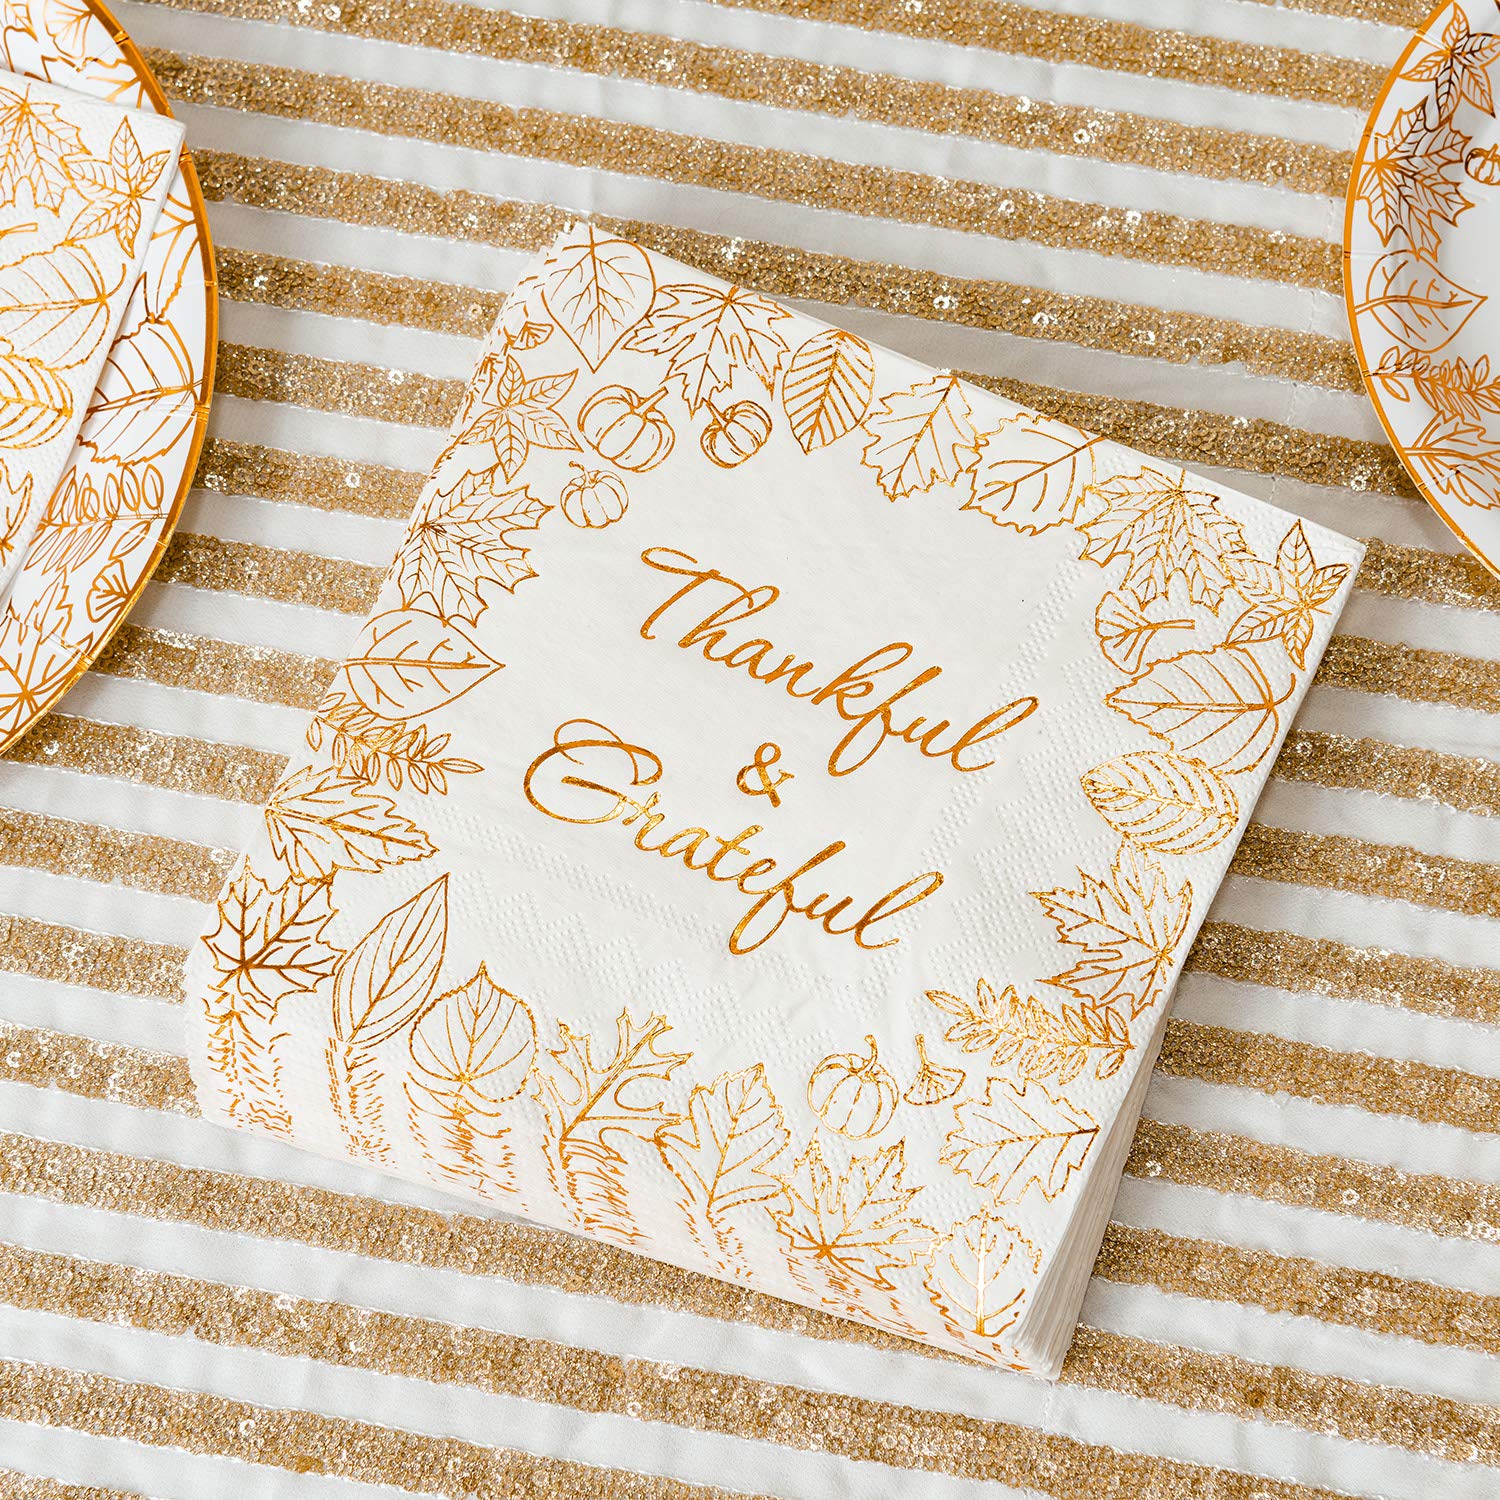 Thankful
&
Grateful